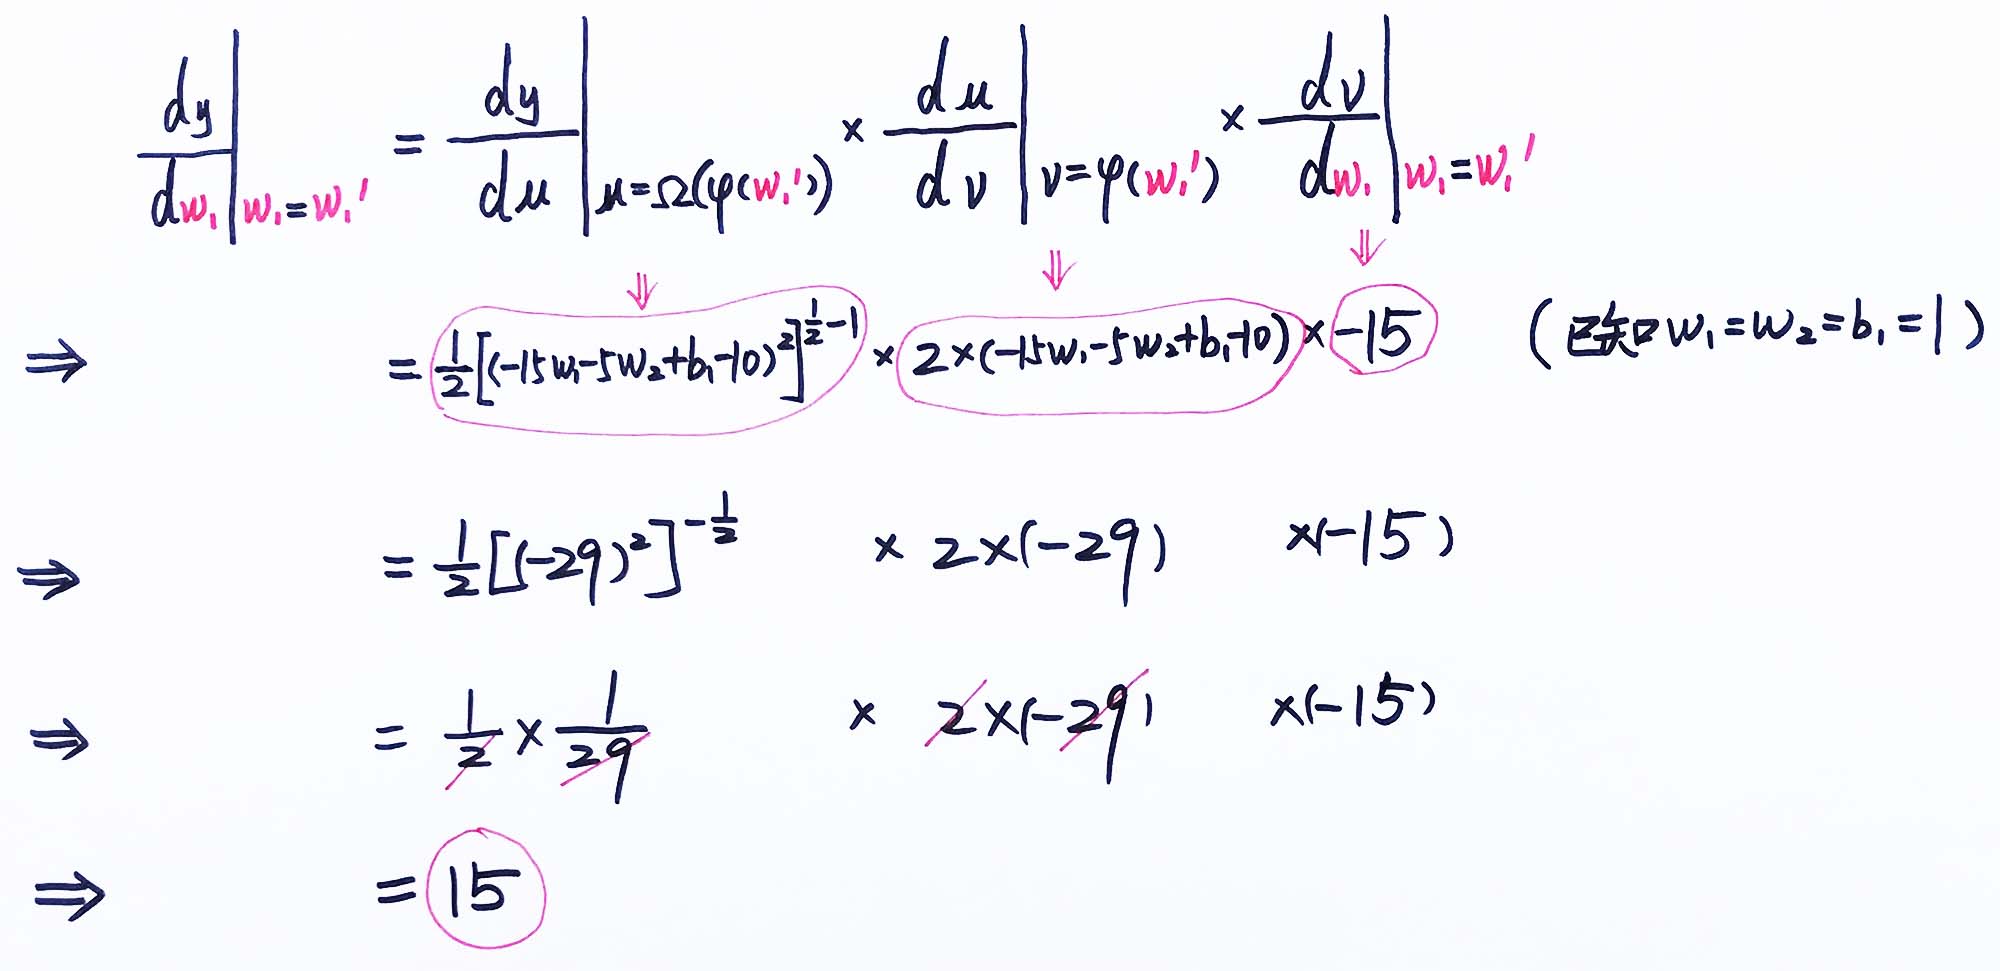 dy/dw₁|w₁=w₁' = dy/du|u=Ω(φ(w₁')) × du/dv|v=φ(w₁') × dv/dw₁|w₁=w₁'
⇓ ⇓ ⇓
⇒ = 1/2[(-15w₁-5w₂+b₁-10)²]^(1/2-1) × 2×(-15w₁-5w₂+b₁-10) × -15 (已知w₁=w₂=b₁=1)
⇒ = 1/2[(-29)²]^(-1/2) × 2×(-29) ×(-15)
⇒ = 1/2 × 1/29 × 2×(-29) ×(-15)
⇒ = 15